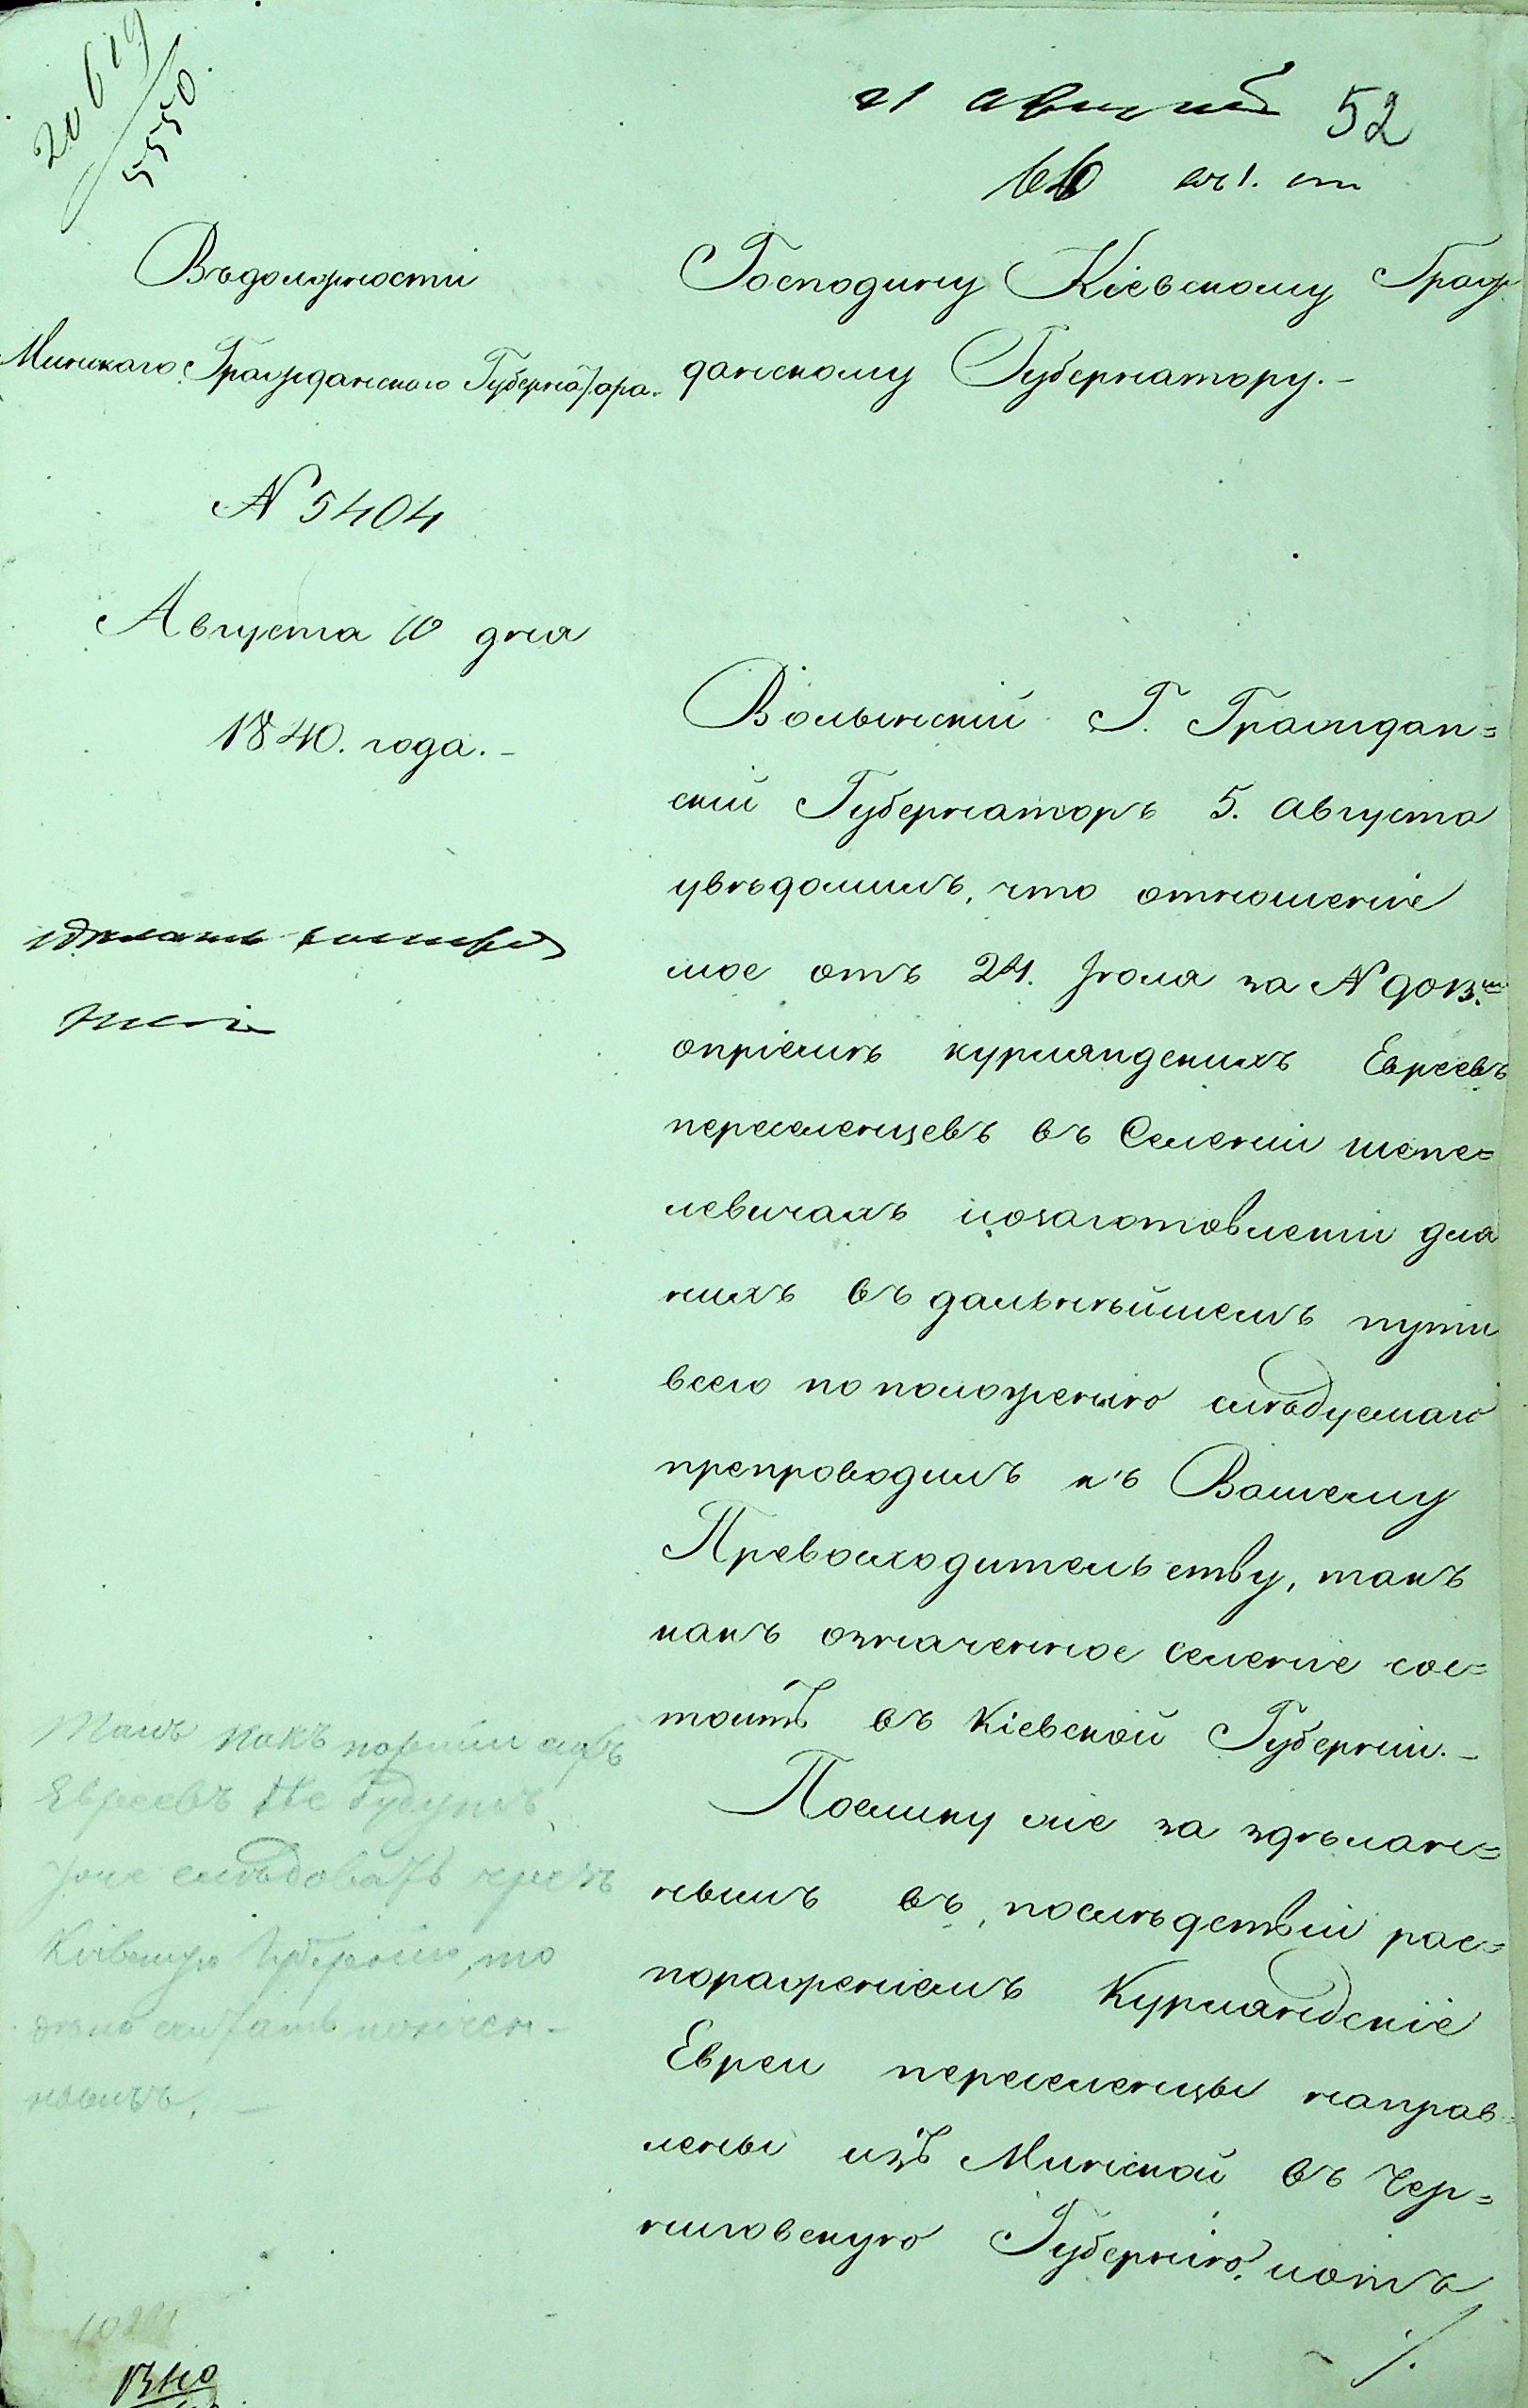 20619
5550.
21 августа 52
вх 1. ст
Въдолжности
Минскаго Гражданскаго Губернатора.
N 5404
Августа 10 дня
1840. года.-
Господину Кіевскому Граж
данскому Губернатору.-
Волынскій Г. Граждан=
скій Губернаторъ 5. августа
увѣдомилъ, что отношеніе
мое отъ 24. Іюля за N 9013.мъ
опріемѣ курляндскихъ Евреевъ
переселенцевъ въ Селеніи шепе=
левичахъ изаготовленіи для
нихъ въ дальнѣйшемъ пути
всего по положенію слѣдуемаго
препроводилъ къ Вашему
Превосходительству, такъ
какъ означенное селеніе сос=
тоитъ въ Кіевской Губерніи.-
Поелику же за здѣлан=
нымъ въ послѣдствіи рас=
поряженіемъ Курляндскіе
Евреи переселенцы направ=
лены изъ Минской въ Чер=
ниговскую Губернію, иотъ
./.
Такъ какъ партіи сихъ
Евреевъ Не будутъ
уже слѣдовать чрезъ
Кіевскую Губернію, то
дѣло считать кончен-
нымъ. -